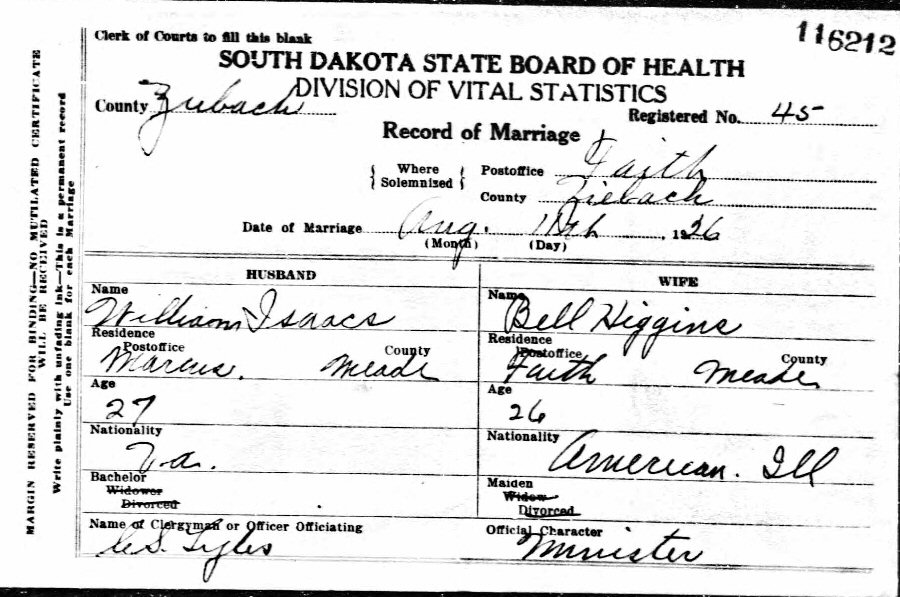 Clerk of Courts to fill this blank
116212
SOUTH DAKOTA STATE BOARD OF HEALTH
DIVISION OF VITAL STATISTICS
County Ziebach
Registered No. 45
Record of Marriage
Where Solemnized
Postoffice Faith
County Ziebach
Date of Marriage Aug. 1926
(Month) (Day)
HUSBAND
WIFE
Name
Name
William Isaacs
Bell Higgins
Residence
Residence
Postoffice County
Postoffice County
Marcus. Meade
Faith Meade
Age
Age
27
26
Nationality
Nationality
American. Ill
Bachelor
Maiden
Widower
Widow
Divorced
Divorced
Name of Clergyman or Officer Officiating
Official Character
Minister
MARGIN RESERVED FOR BINDING—NO MUTILATED CERTIFICATE
WILL BE RECEIVED
Write plainly with unfading ink—This is a permanent record
Use one blank for each Marriage